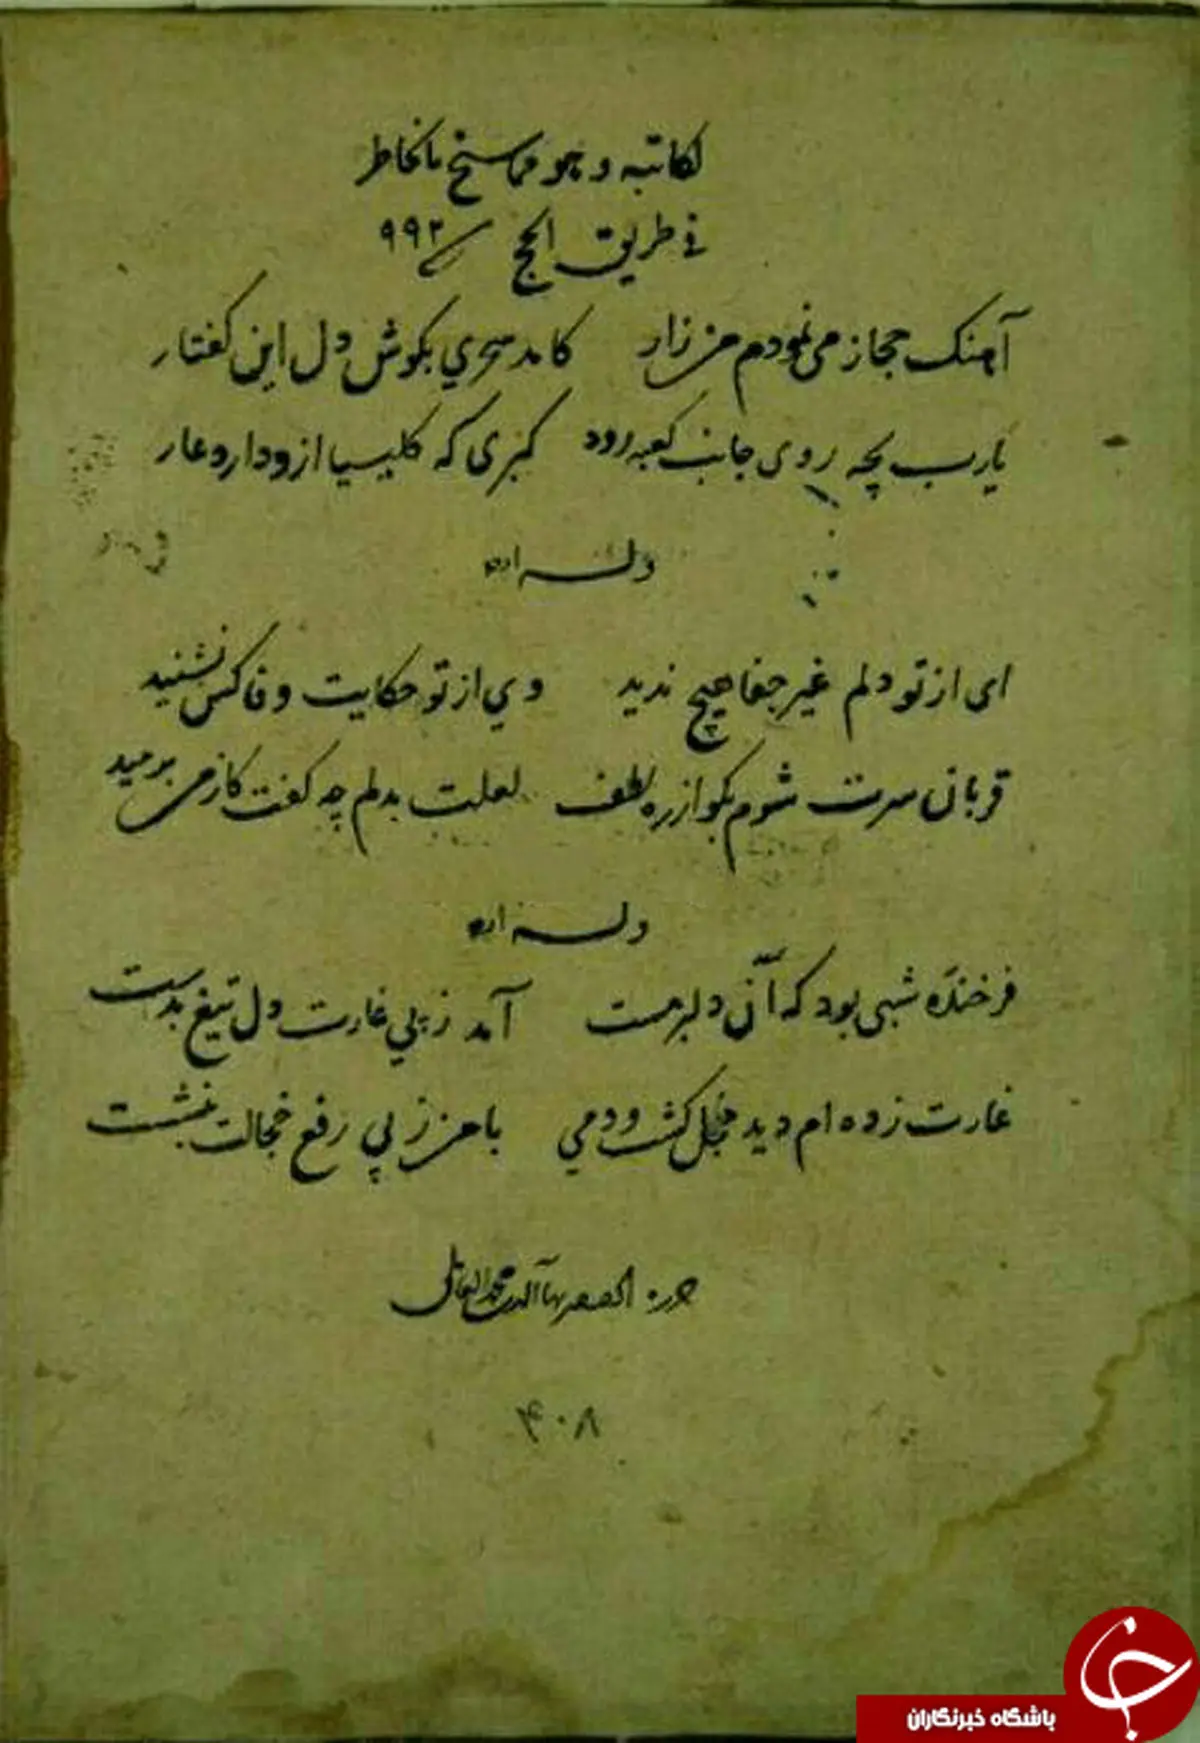 لكاتبه و هو مما سنح بالخاطر
في طريق الحج سنة ٩٩٢
آهنک حجاز می نمودم من زار کامد سحري بکوش دل این کفتار
یارب بچه روی جانب کعبه رود کبری که کلیسیا ازو دارد عار
وله
ای از تو دلم غیر جفا هیچ ندید وي از تو حکایت وفا کس نشنید
قربان سرت شوم بکو از ره لطف لعلت بدلم چه کفت کز من برمید
وله
فرخنده شبی بود که آن دلبر مست آمد ز پي غارت دل تیغ بدست
غارت زده ام دید خجل کشت و دمي با من ز پي رفع خجالت بنشست
بهاء الدین محمد العاملی
۴۰۸
باشگاه خبرنگاران